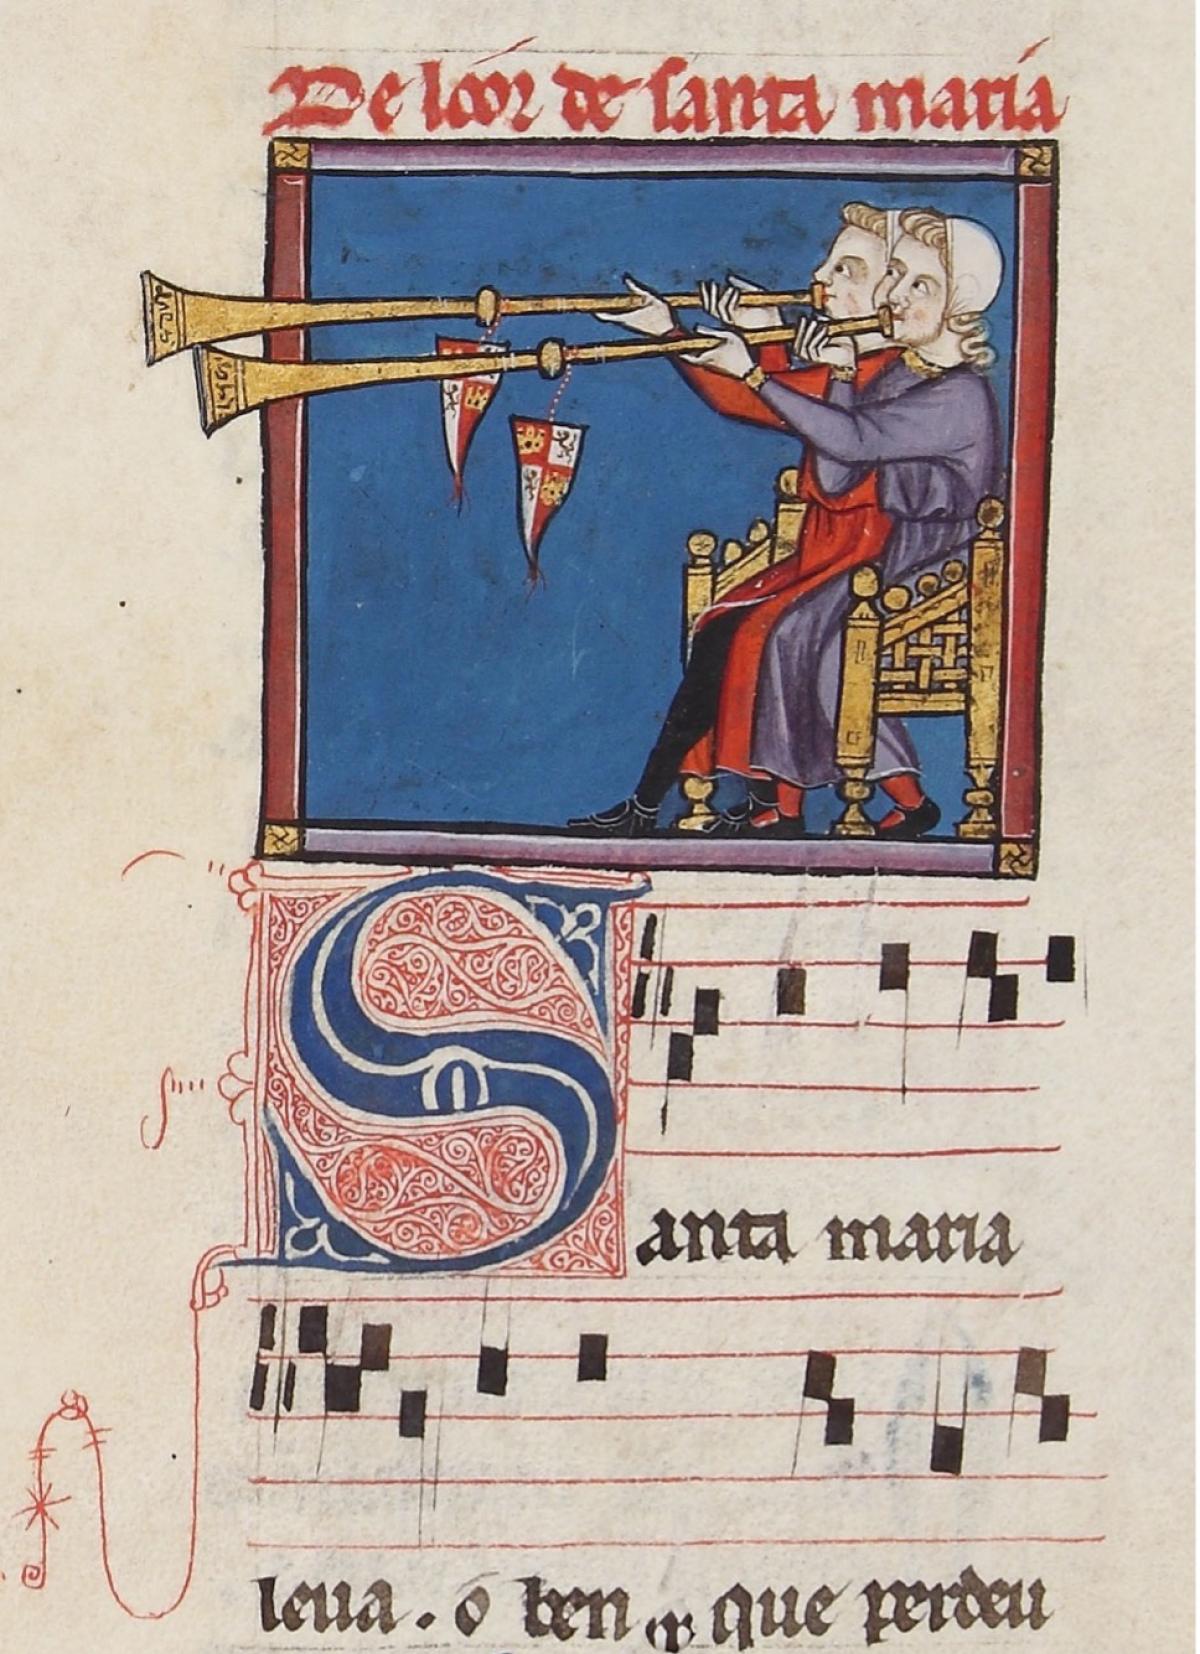 De loór de santa maria
Santa maria
leua. ó ben que perdeu